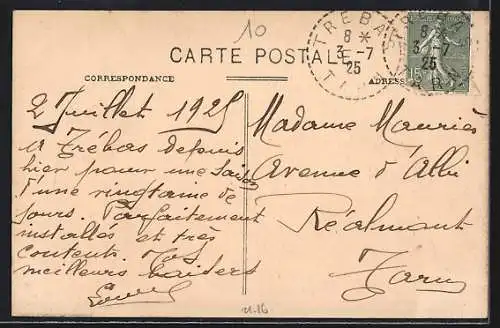 10
TRÉBAS
8*
3-7
25
TARN
TRÉBAS
8*
3-7
25
TARN
15
CARTE POSTALE
CORRESPONDANCE
ADRESSE
2 Juillet 1925
à Trébas depuis
hier pour une saison
d'une vingtaine de
jours. Parfaitement
installés et très
contents. Nos
meilleurs baisers
Madame Mauriès
Avenue d'Albi
Réalmont
Tarn